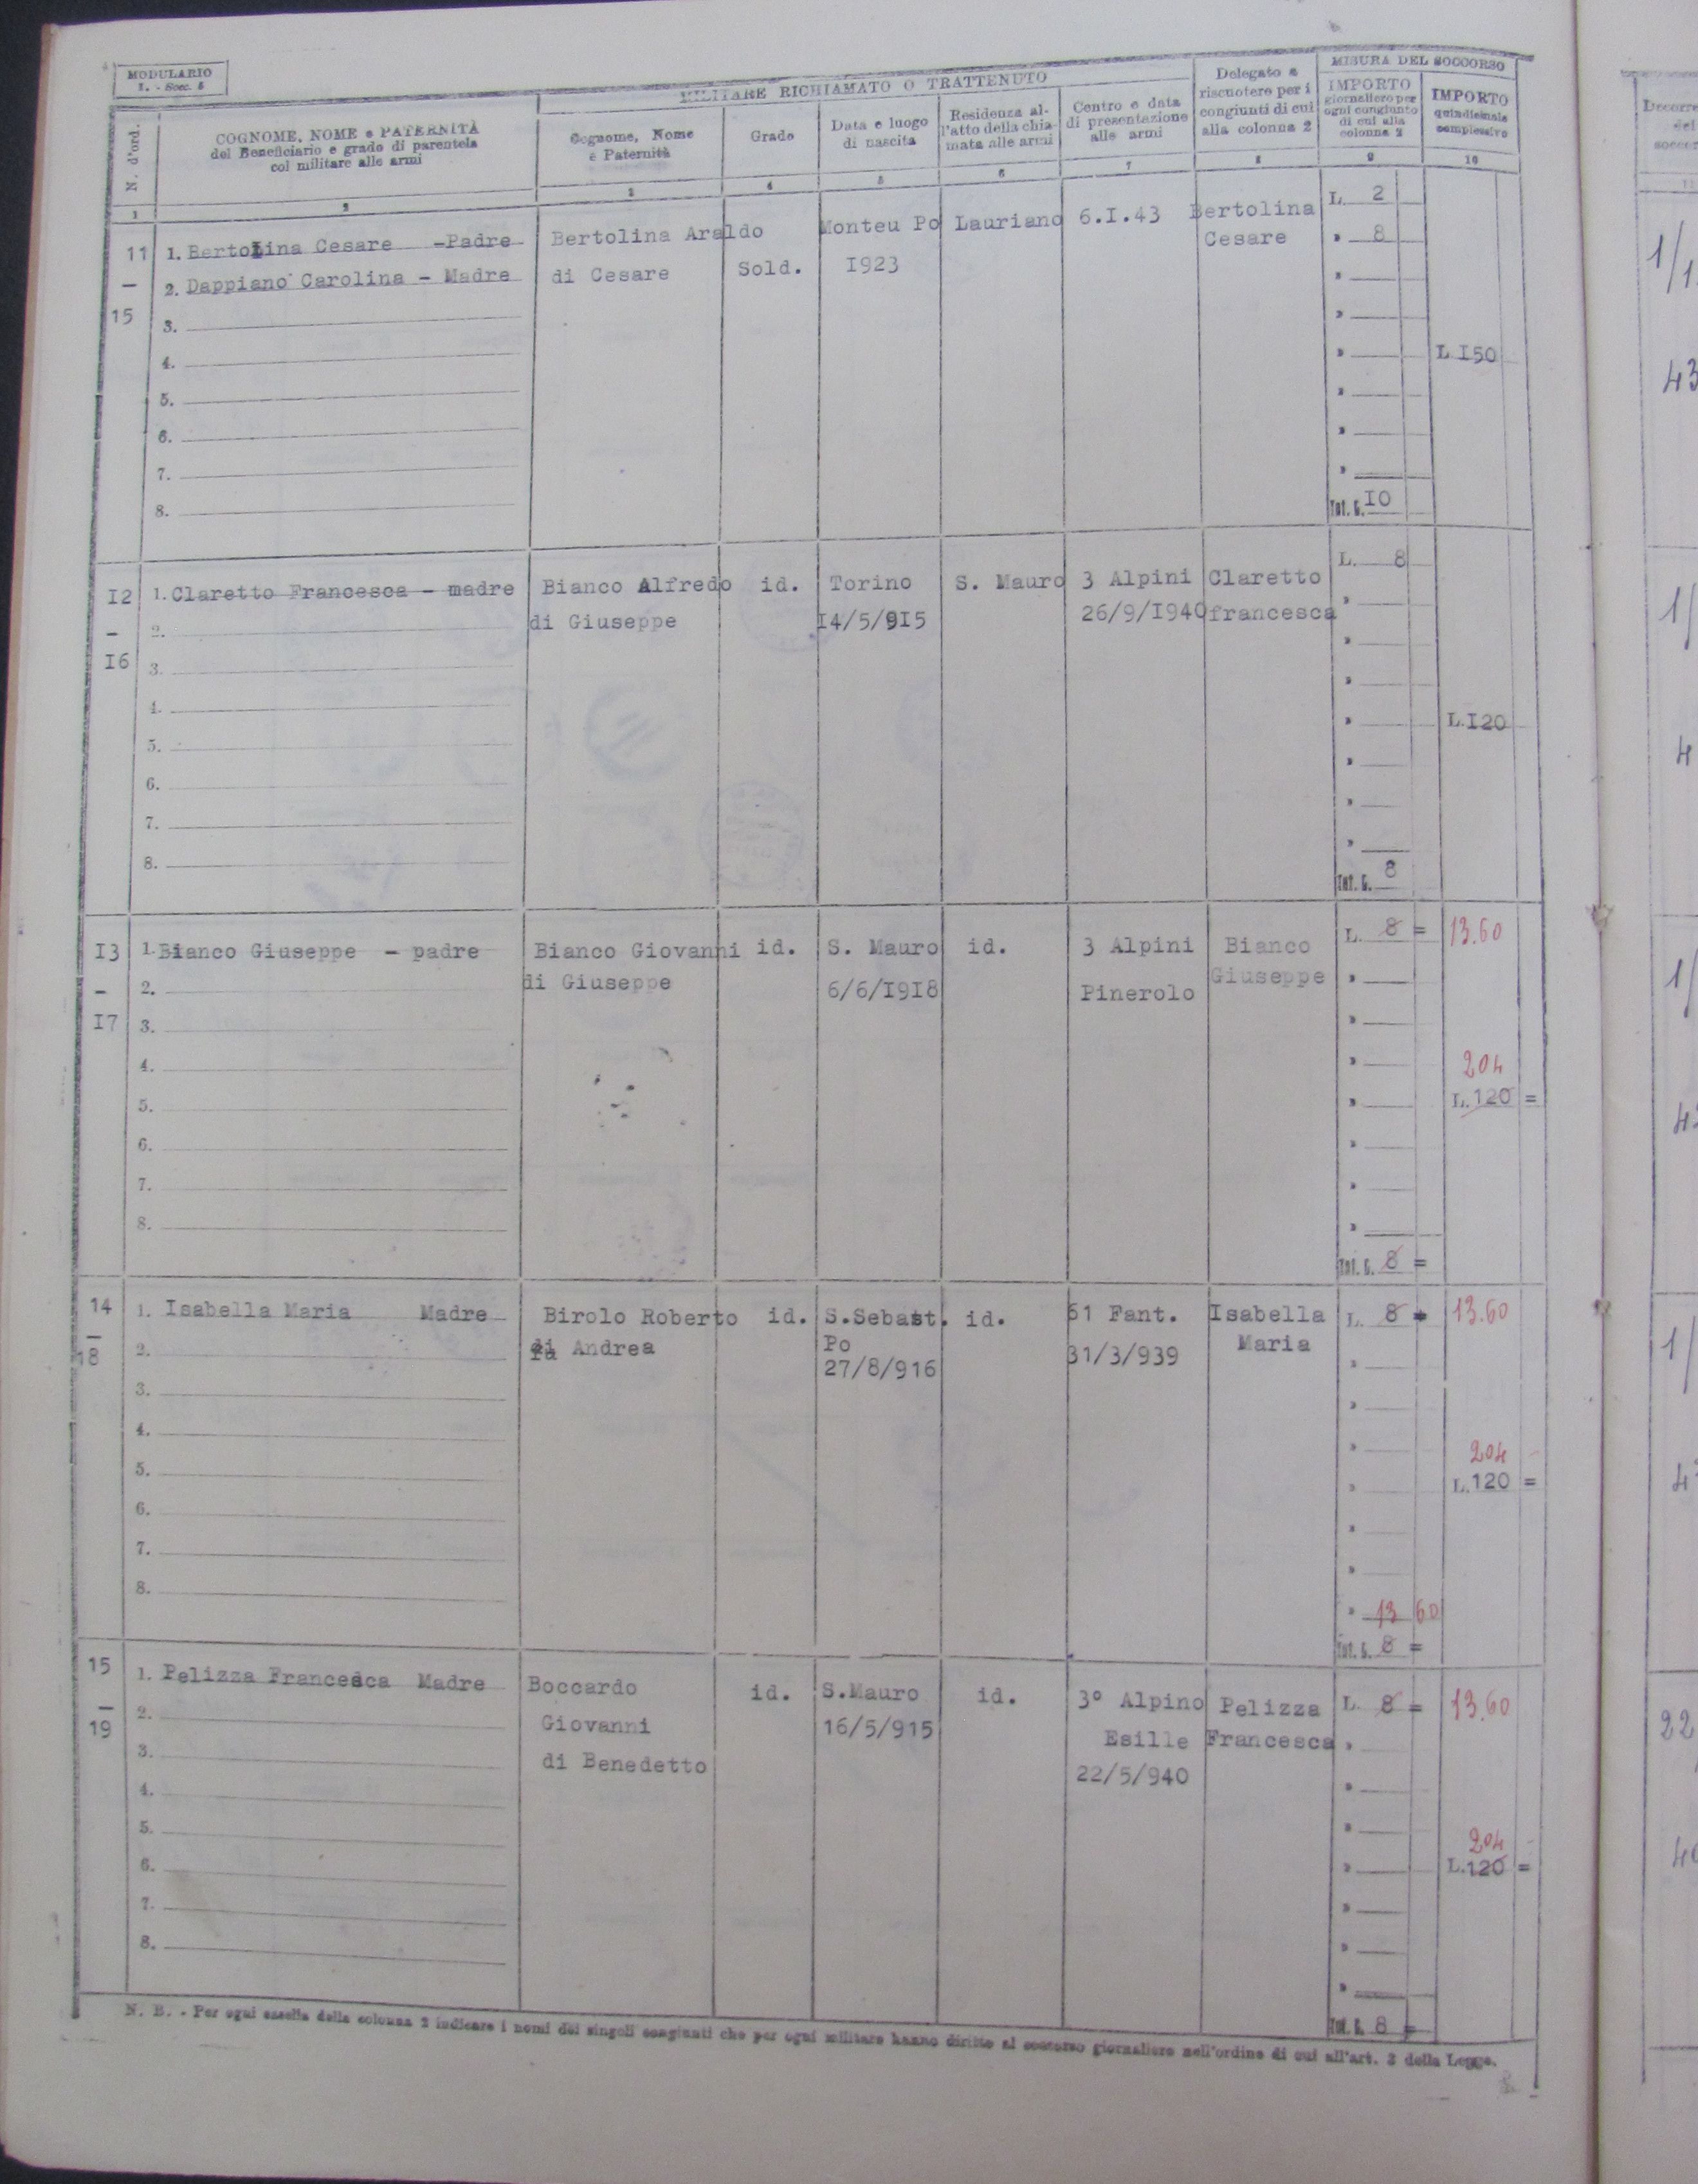 MODULARIO
I. - Socc. 5
N. d'ord.
COGNOME, NOME e PATERNITÀ
del Beneficiario e grado di parentela
col militare alle armi
MILITARE RICHIAMATO O TRATTENUTO
Cognome, Nome
e Paternità
Grado
Data e luogo
di nascita
Residenza al-
l'atto della chia-
mata alle armi
Centro e data
di presentazione
alle armi
Delegato a
riscuotere per i
congiunti di cui
alla colonna 2
MISURA DEL SOCCORSO
IMPORTO
giornaliero per
ogni congiunto
di cui alla
colonna 2
IMPORTO
quindicinale
complessivo
1 2 3 4 5 6 7 8 9 10
11
–
15
1. Bertolina Cesare –Padre
2. Dappiano Carolina – Madre
3.
4.
5.
6.
7.
8.
Bertolina Araldo
di Cesare
Sold.
Monteu Po
I923
Lauriano
6.I.43
Bertolina
Cesare
L. 2
" 8
Tot. G. IO
L. I50
I2
–
I6
1. Claretto Francesca – madre
2.
3.
4.
5.
6.
7.
8.
Bianco Alfredo
di Giuseppe
id.
Torino
I4/5/9I5
S. Mauro
3 Alpini
26/9/I940
Claretto
francesca
L. 8
Tot. G. 8
L. I20
I3
–
I7
1. Bianco Giuseppe – padre
2.
3.
4.
5.
6.
7.
8.
Bianco Giovanni
di Giuseppe
id.
S. Mauro
6/6/I9I8
id.
3 Alpini
Pinerolo
Bianco
Giuseppe
L. 8 =
13.60
204
L. 120 =
Tot. G. 8 =
14
–
18
1. Isabella Maria Madre
2.
3.
4.
5.
6.
7.
8.
Birolo Roberto
Andrea
id.
S.Sebast.
Po
27/8/916
id.
61 Fant.
31/3/939
Isabella
Maria
L. 8 =
13.60
204
L. 120 =
" 13 60
Tot. G. 8 =
15
–
19
1. Pelizza Francesca Madre
2.
3.
4.
5.
6.
7.
8.
Boccardo
Giovanni
di Benedetto
id.
S.Mauro
16/5/915
id.
3° Alpino
Esille
22/5/940
Pelizza
Francesca
L. 8 =
13.60
204
L. 120 =
Tot. G. 8 =
N. B. - Per ogni casella della colonna 2 indicare i nomi dei singoli congiunti che per ogni militare hanno diritto al soccorso giornaliero nell'ordine di cui all'art. 2 della Legge.